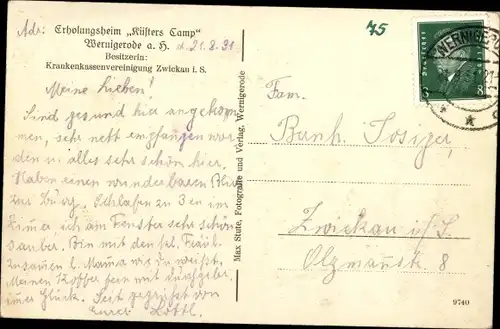 Adr: Erholungsheim „Küsters Camp"
Wernigerode a. H. d. 21.8.31
Besitzerin:
Krankenkassenvereinigung Zwickau i. S.
Meine Lieben!
Sind gesund hier angekom-
men, sehr nett empfangen wor-
den u. alles sehr schön hier.
Haben einen wunderbaren Blick
zur Burg. Schlafen zu 3en im
Zimer ich am Fenster sehr schön
sauber. Bin mit den
zusamen
Meinen Koffer
imer Glück. Seit gegrüßt von
Eurer
Max Stute, Fotografie und Verlag, Wernigerode
75
Deutsches
8
WERNIGERODE
Fam.
Bernh.
Zwickau i/S.
8
9740